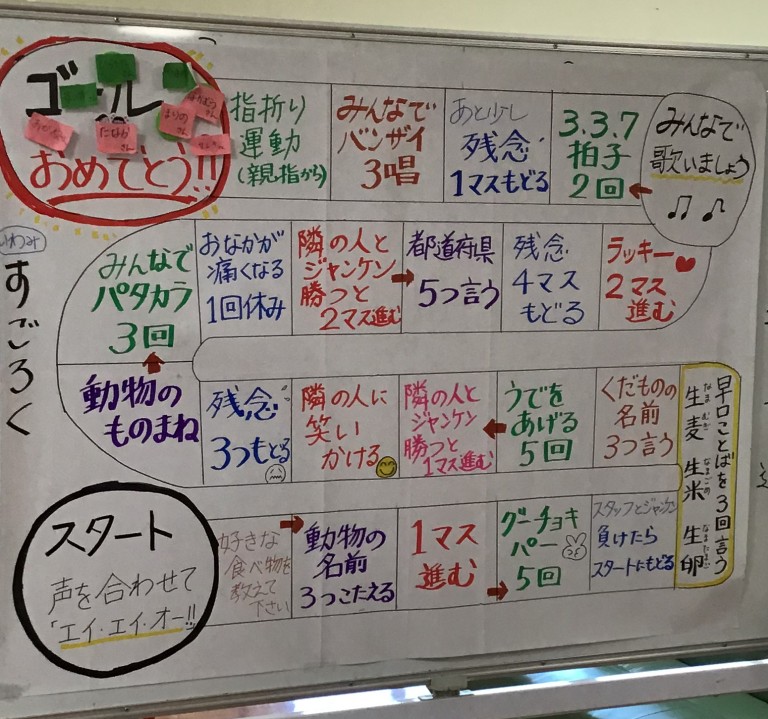 ゴール
おめでとう!!
指折り
運動
(親指から)
みんなで
バンザイ
3唱
あと少し
残念
1マスもどる
3.3.7
拍子
2回
みんなで
歌いましょう
すごろく
みんなで
パタカラ
3回
おなかが
痛くなる
1回休み
隣の人と
ジャンケン
勝つと
2マス進む
都道府県
5つ言う
残念
4マス
もどる
ラッキー
2マス
進む
動物の
ものまね
残念
3つもどる
隣の人に
笑い
かける
隣の人と
ジャンケン
勝つと
1マス進む
うでを
あげる
5回
くだものの
名前
3つ言う
早口ことばを3回言う
生麦 生米 生卵
スタート
声を合わせて
「エイ・エイ・オー!!
好きな
食べ物を
教えて
下さい
動物の
名前
3つこたえる
1マス
進む
グーチョキ
パー
5回
スタッフとジャンケン
負けたら
スタートにもどる